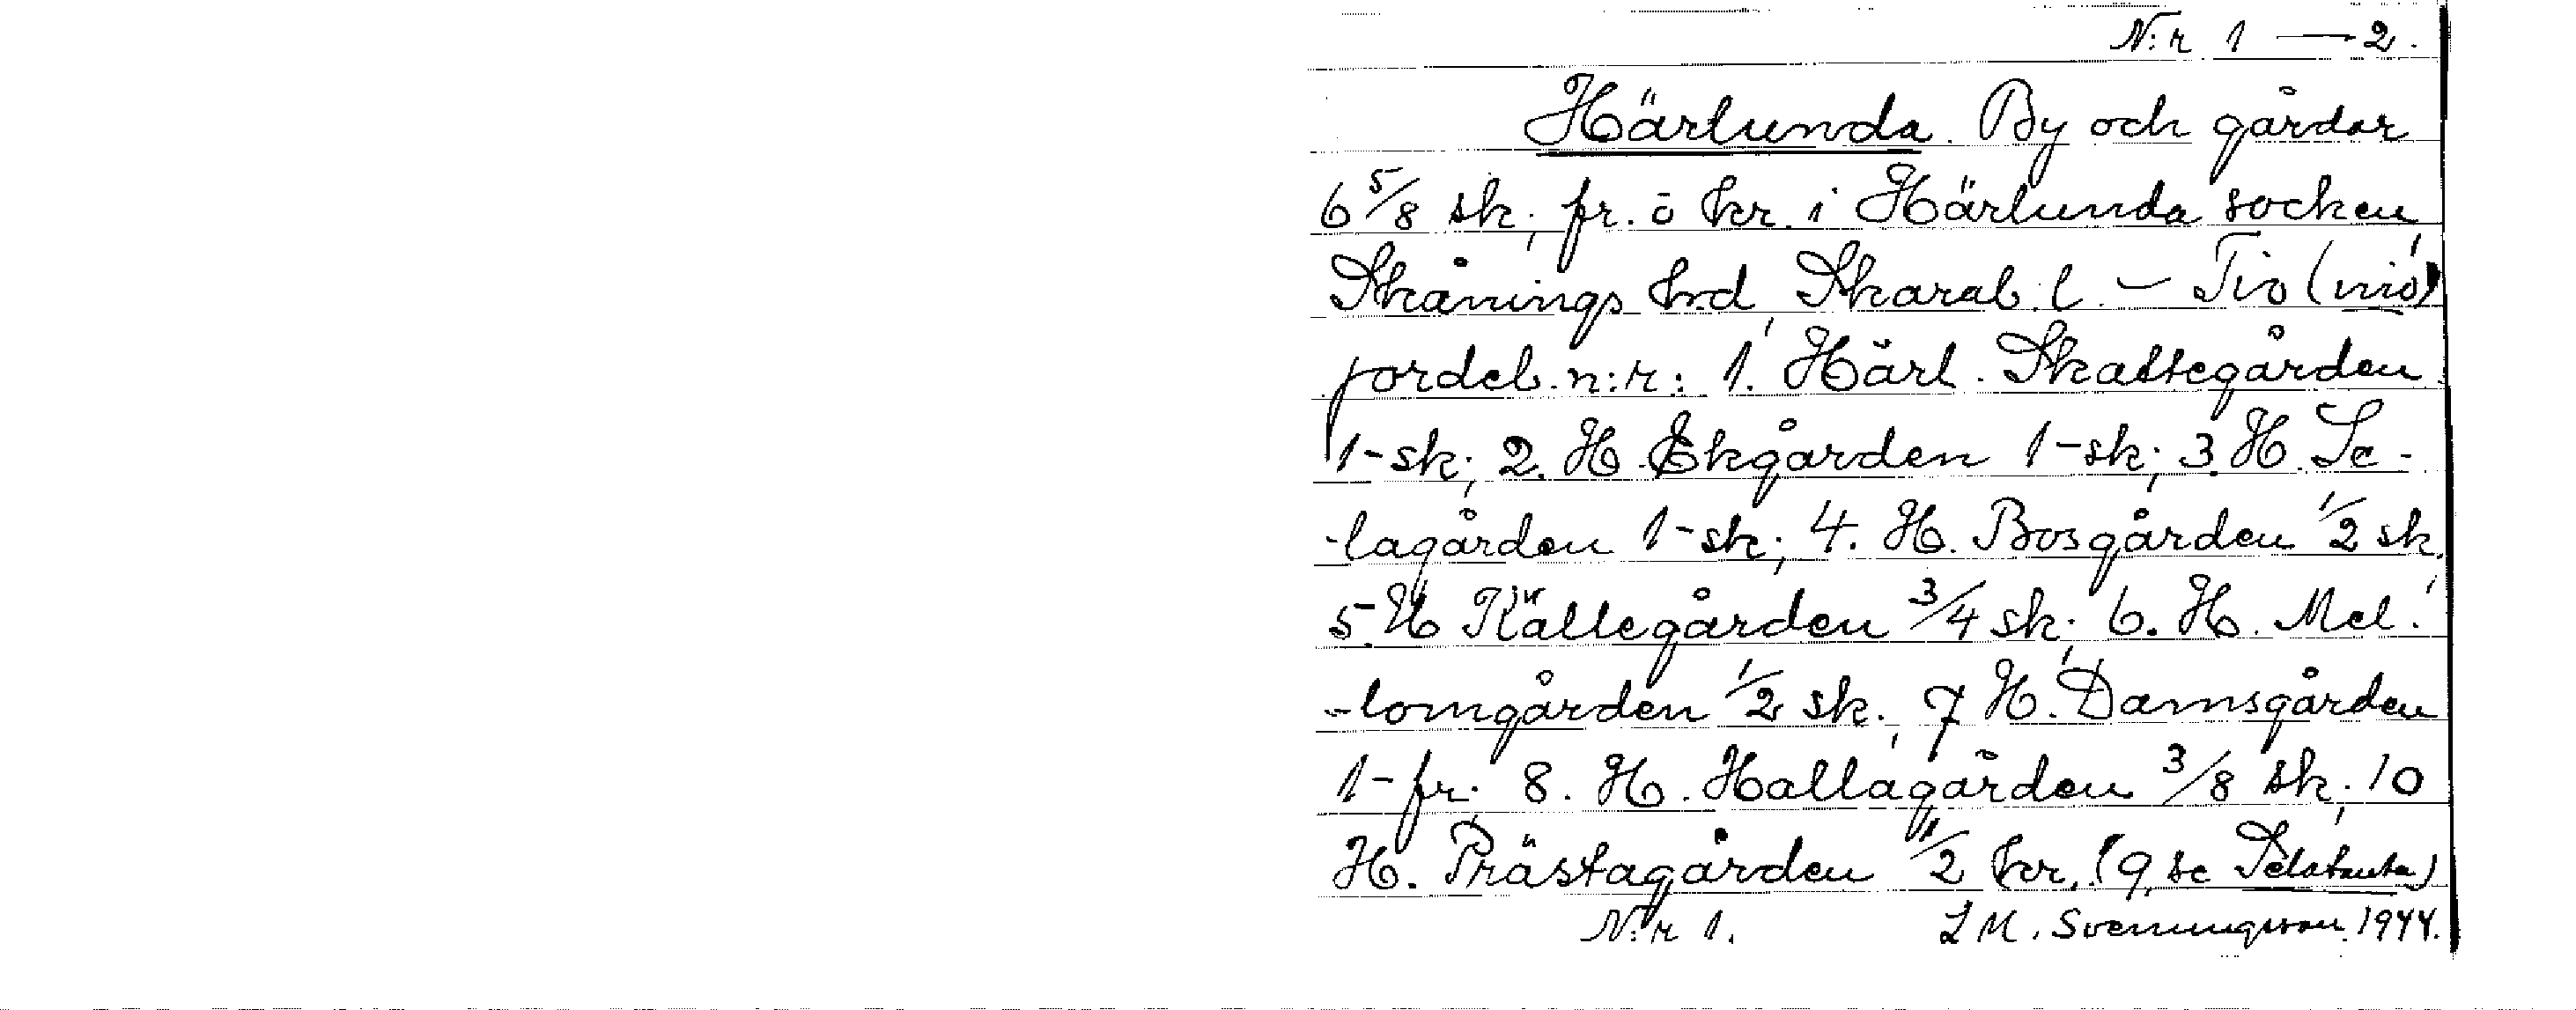 N:r 1 — 2.
Härlunda. By och gårdar
6 5/8 sk; fr. o kr. i Härlunda socken,
Skånings hrd, Skarab. l. – Tio (nio)
jordeb. n:r: 1. Härl. Skattegården
1-sk; 2. H. Ekgården 1-sk; 3. H. Se-
-lagården 1-sk; 4. H. Bosgården 1/2 sk;
5. H. Källegården 3/4 sk; 6. H. Mel-
-lomgården 1/2 sk; 7 H. Damsgården
1-fr; 8. H. Hallagården 3/8 sk; 10
H. Prästagården 1/2 kr. (9, se)
N:r 1. L M. Svenungsson 1944.